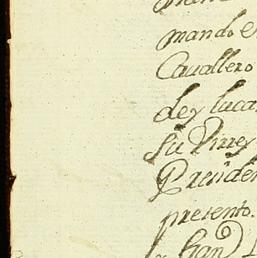 mando e
Cavallero
de y luca
su Virrey
Presiden
presento.